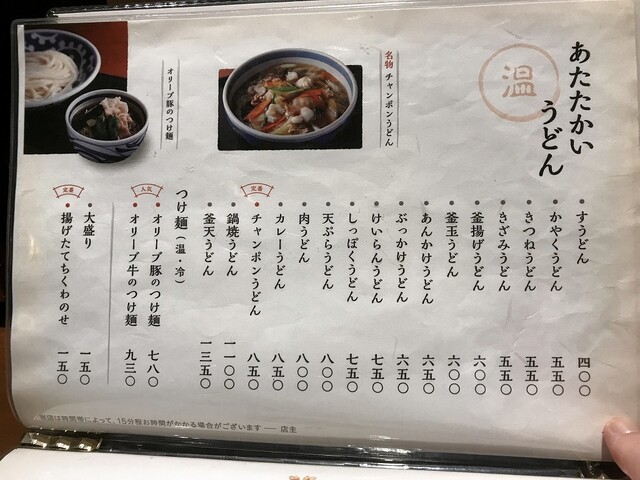 あたたかい
うどん
温
名物 チャンポンうどん
オリーブ豚のつけ麺
すうどん 四〇〇
かやくうどん 五五〇
きつねうどん 五五〇
きざみうどん 五五〇
釜揚げうどん 六〇〇
釜玉うどん 六〇〇
あんかけうどん 六五〇
ぶっかけうどん 六五〇
けいらんうどん 七五〇
しっぽくうどん 七五〇
天ぷらうどん 八〇〇
肉うどん 八〇〇
カレーうどん 八五〇
定番
チャンポンうどん 八五〇
鍋焼うどん 一一〇〇
釜天うどん 一三五〇
つけ麺（温・冷）
人気
オリーブ豚のつけ麺 七八〇
オリーブ牛のつけ麺 九三〇
大盛り 一五〇
定番
揚げたてちくわのせ 一五〇
当店は時間帯によって、15分程お時間がかかる場合がございます ── 店主